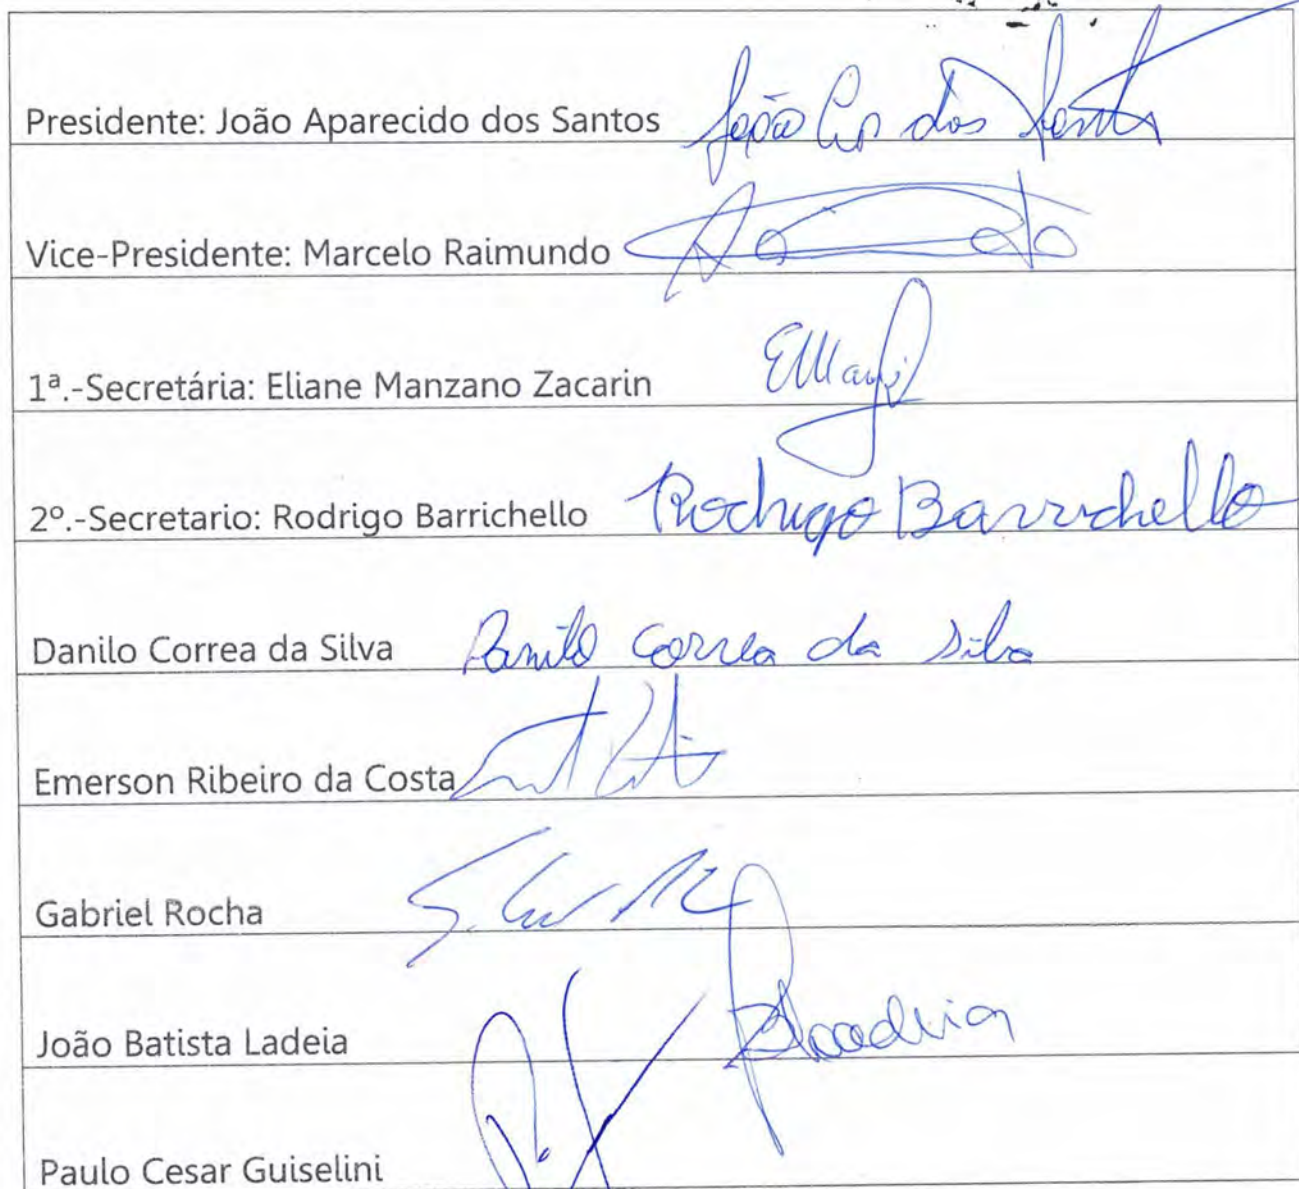 Presidente: João Aparecido dos Santos João Ap dos Santos
Vice-Presidente: Marcelo Raimundo
1ª.-Secretária: Eliane Manzano Zacarin
2º.-Secretario: Rodrigo Barrichello Rodrigo Barrichello
Danilo Correa da Silva Danilo Correa da Silva
Emerson Ribeiro da Costa
Gabriel Rocha
João Batista Ladeia
Paulo Cesar Guiselini